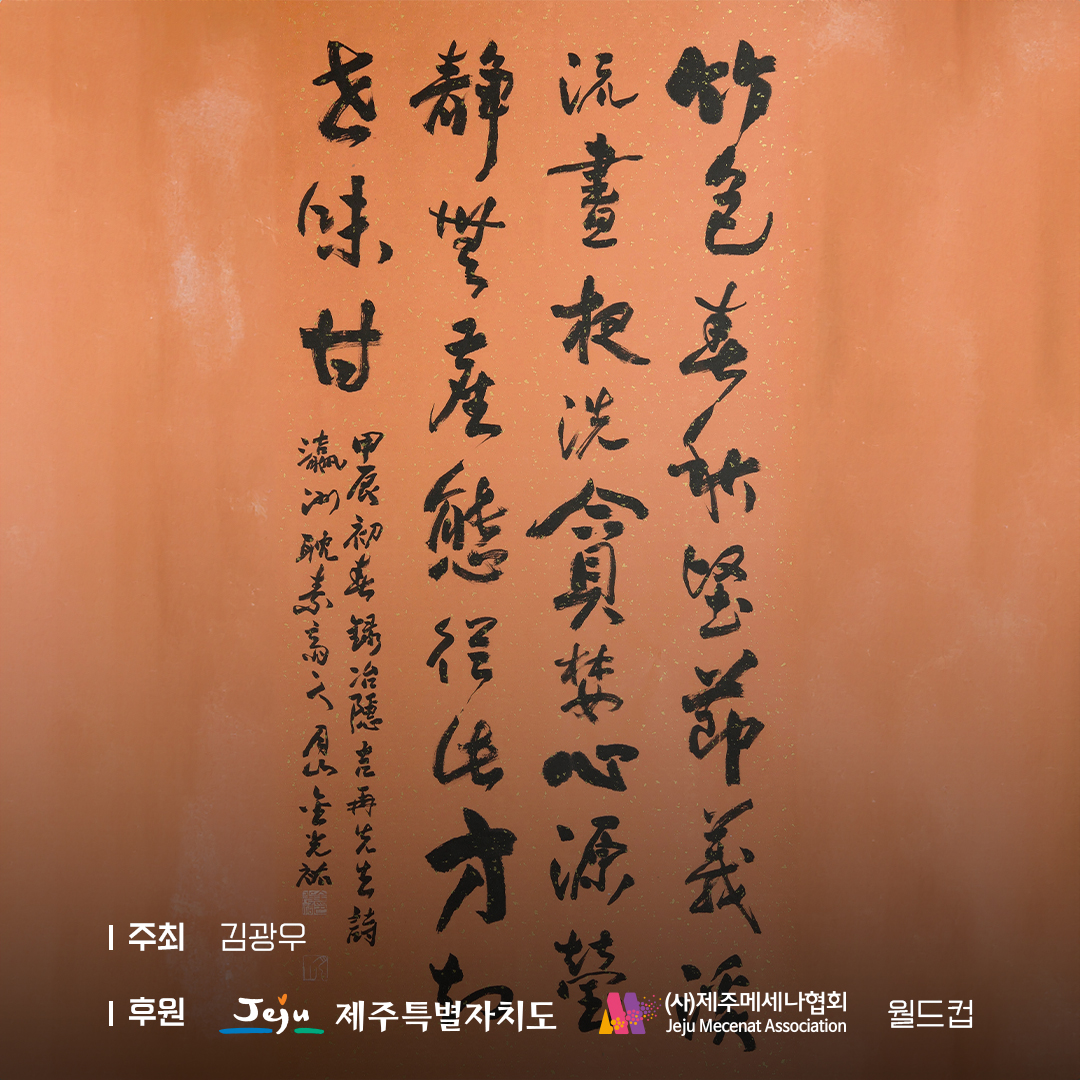 竹色春秋堅節義溪
流晝夜洗貪婪心源瑩
靜無塵態從此方知
道味甘
甲辰初春錄冶隱吉再先生詩
瀛洲耽素齋人月山金光祐
주최 김광우
후원 Jeju 제주특별자치도 (사)제주메세나협회 월드컵
Jeju Mecenat Association